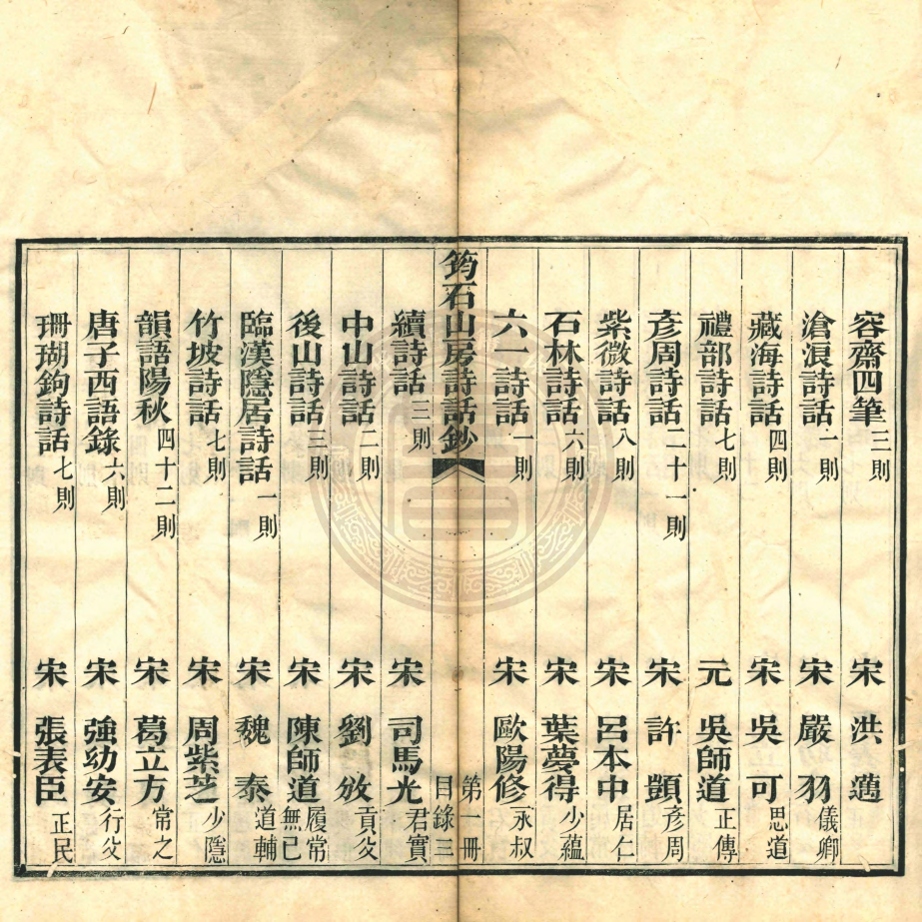 容齋四筆三則 宋 洪邁
滄浪詩話一則 宋 嚴羽儀卿
藏海詩話四則 宋 吳可思道
禮部詩話七則 元 吳師道正傳
彥周詩話二十一則 宋 許顗彥周
紫微詩話八則 宋 呂本中居仁
石林詩話六則 宋 葉夢得少蘊
六一詩話一則 宋 歐陽修永叔
筠石山房詩話鈔 第一冊 目錄三
續詩話三則 宋 司馬光君實
中山詩話二則 宋 劉攽貢父
後山詩話三則 宋 陳師道履常無己
臨漢隱居詩話一則 宋 魏泰道輔
竹坡詩話七則 宋 周紫芝少隱
韻語陽秋四十二則 宋 葛立方常之
唐子西語錄六則 宋 強幼安行父
珊瑚鉤詩話七則 宋 張表臣正民